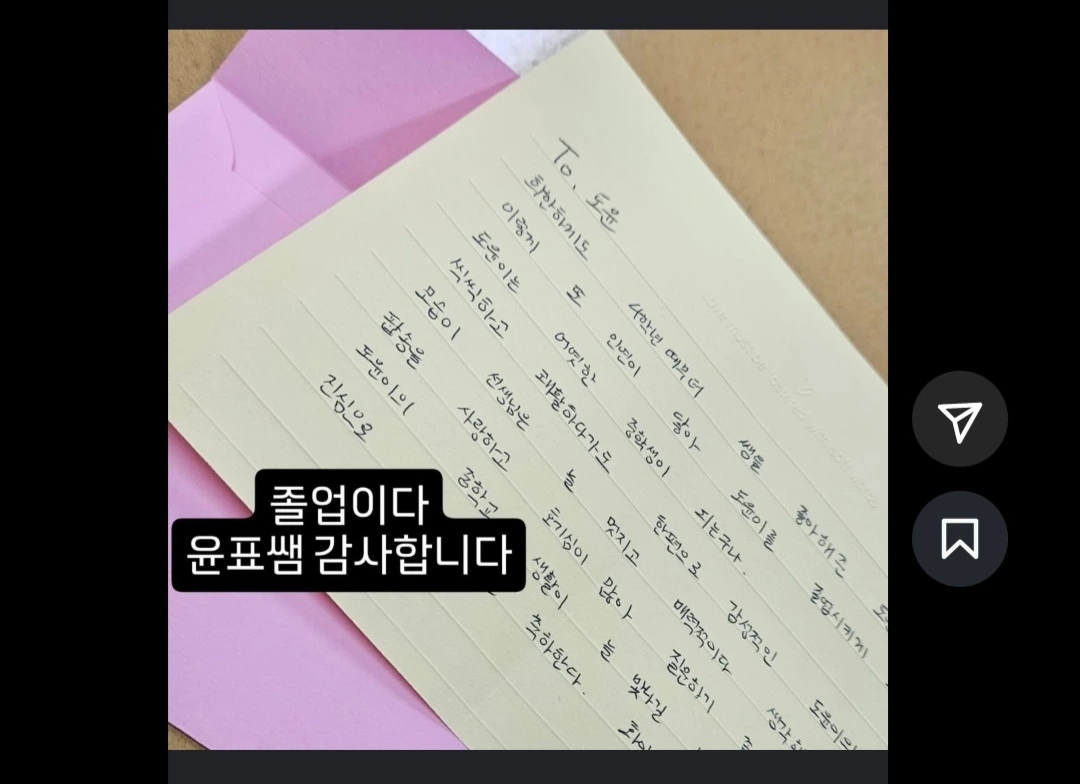 To. 도윤
희안하게도 4학년 때부터 쌤을 좋아해준
이렇게 또 인연이 닿아 도윤이를 졸업시키게
도윤이는 어엿한 중학생이 되는구나.
씩씩하고 쾌활하다가도 한편으로 감성적인 도윤이의
모습이 선생님은 늘 멋지고 매력적이다
팝송을 사랑하고 호기심이 많아 질문하기
도윤이의 중학교 생활이 늘 빛나길
진심으로 축하한다.
졸업이다
윤표쌤 감사합니다